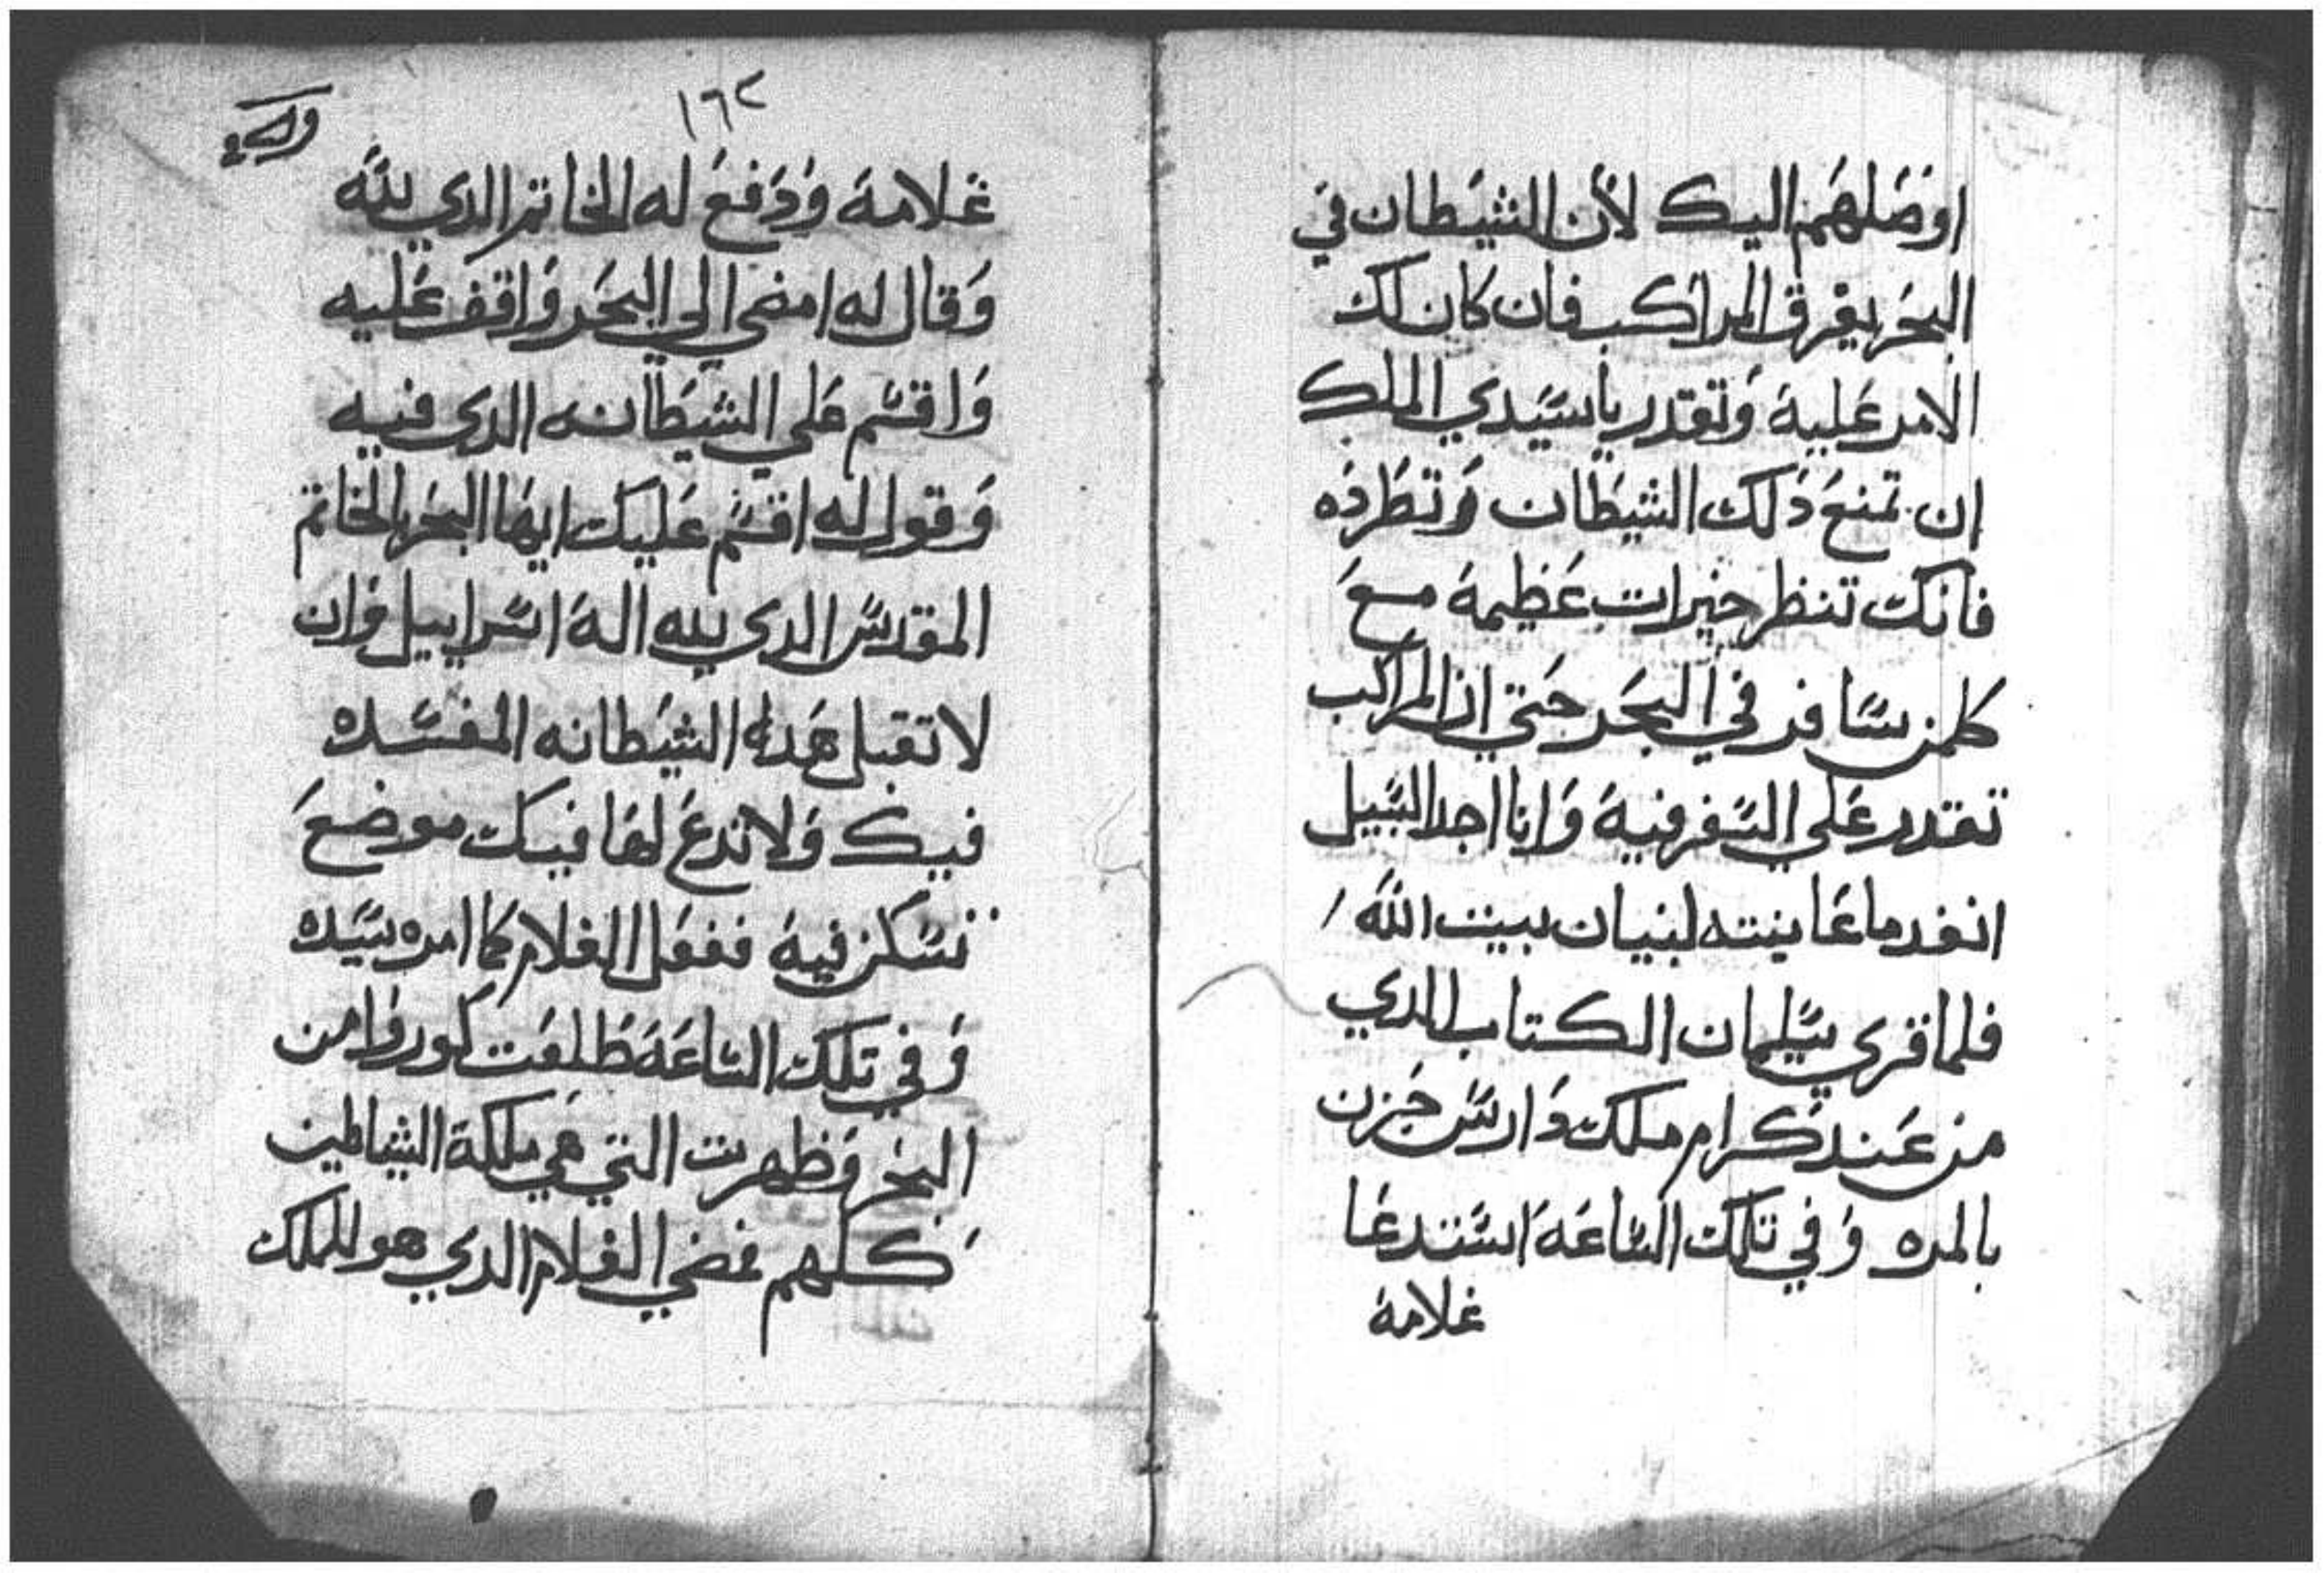 اوصلهم اليك لأن الشيطان في
البحر يغرق المراكب فان كان لك
الامر عليه وتقدر ياسيدي الملك
ان تمنع دلك الشيطان وتطرده
فانك تنظر خيرات عظيمة مع
كلمن سافر في البحر حتي ان المراكب
تقدر علي السفر فيه وانا اجد السبيل
انفد ما عاينته لبنيان بيت الله
فلما قري سليمان الكتاب الدي
من عند كرام ملك دارس حزن
بالمره وفي تلك الساعة استدعا
غلامه
١٦٢
غلامه ودفع له الخاتم الدي لله
وقال له امضي الي البحر واقف عليه
واقسم علي الشيطانه الدي فيه
وقول له اقسم عليك ايها البحر بالخاتم
المقدس الدي لله اله اسراييل وان
لا تقبل هده الشيطانه المفسده
فيك ولا تدع لها فيك موضع
تسكن فيه ففعل الغلام كما امره سيده
وفي تلك الساعة طلعت كوروا من
البحر وظهرت التي هي ملكة الشياطين
كلهم فمضي الغلام الدي هو للملك